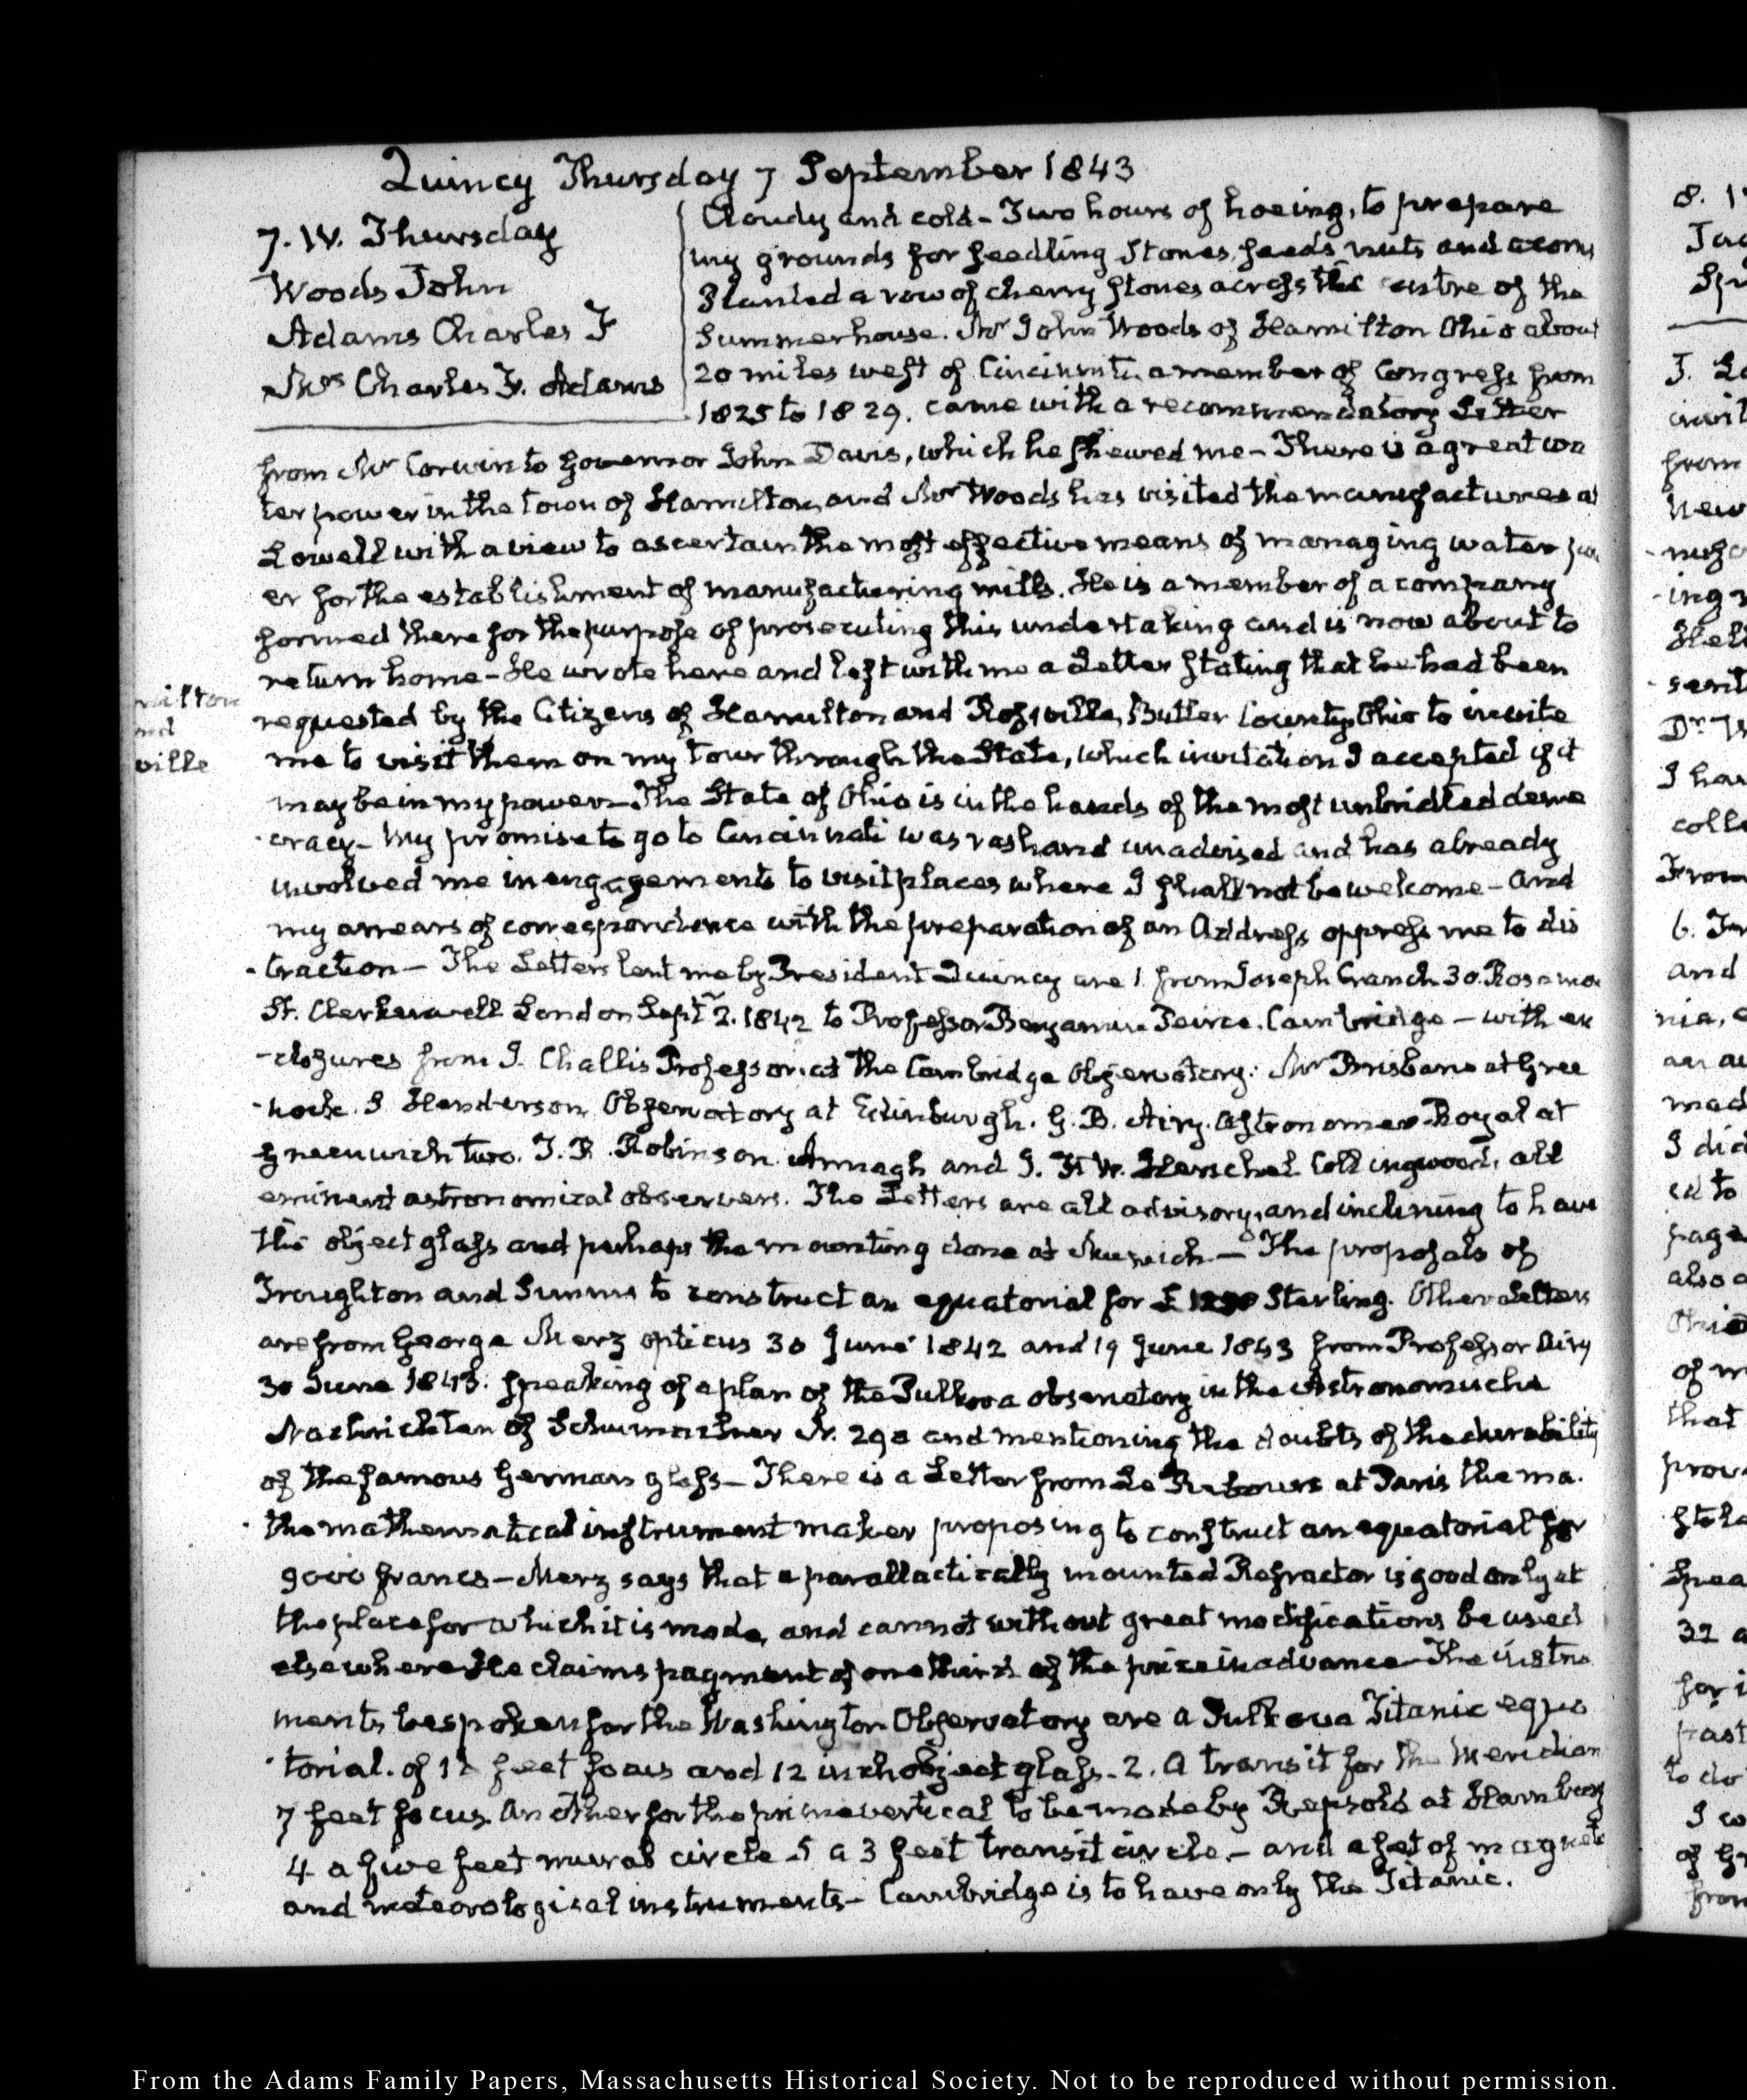 Quincy Thursday 7 September 1843
7. IV. Thursday
Woods John
Adams Charles F
Mrs Charles F. Adams
Cloudy and cold - Two hours of hoeing, to prepare
my grounds for seedling Stones, seeds, nuts and acorns
Planted a row of cherry stones across the centre of the
Summerhouse. Mr John Woods of Hamilton Ohio about
20 miles west of Cincinnati, a member of Congress from
1825 to 1829. came with a recommendatory Letter
from Mr Corwin to Governor John Davis, which he shewed me - There is a great wa
ter power in the town of Hamilton, and Mr Woods has visited the manufactures at
Lowell with a view to ascertain the most effective means of managing water pow
er for the establishment of manufacturing mills. He is a member of a company
formed there for the purpose of prosecuting this undertaking and is now about to
return home - He wrote here and left with me a Letter stating that he had been
requested by the Citizens of Hamilton and Rossville, Butler County, Ohio to invite
me to visit them on my tour through the State, which invitation I accepted if it
may be in my power - The State of Ohio is in the hands of the most unbridled demo
-cracy - My promise to go to Cincinnati was rash and unadvised and has already
involved me in engagements to visit places where I shall not be welcome - and
my arrears of correspondence with the preparation of an Address oppress me to dis
-traction - The Letters lent me by President Quincy are 1. from Joseph Cranch 30. Rosamon
St. Clerkenwell London Septr 2. 1842 to Professor Benjamin Peirce. Cambridge - with en
-closures from J. Challis Professor at the Cambridge Observatory. Mr Brisbane at Gree
-nock. J Henderson Observatory at Edinburgh. G. B. Airy. Astronomer Royal at
Greenwich two. T. R. Robinson. Armagh and J. F. W. Herschel Collingwood, all
eminent astronomical observers. The Letters are all advisory, and inclining to have
the object glass and perhaps the mounting done at Munich - The proposals of
Troughton and Simms to construct an equatorial for £ Sterling. Other Letters
are from George Merz opticus 30 June 1842 and 19 June 1843 from Professor Airy
30 June 1843. speaking of a plan of the Pulkova observatory in the Astronomische
Nachrichten of Schumacher N. 290 and mentioning the doubts of the durability
of the famous German glass - There is a Letter from Le Rebours at Paris the ma.
-thematical instrument maker proposing to construct an equatorial for
9000 francs - Merz says that a parallactically mounted Refractor is good only at
the place for which it is made, and cannot without great modifications be used
elsewhere He claims payment of one third of the price in advance - The instru
ments bespoken for the Washington Observatory are a Pulkova Titanic equa
-torial. of feet focus and 12 inch object glass. 2. A transit for the Meridian
7 feet focus. Another for the prime vertical to be made by Repsold at Hamburg
4 a five feet mural circle 5 a 3 feet transit circle. - and a set of magnet
and meteorological instruments - Cambridge is to have only the Titanic.
milton
nd
ville
From the Adams Family Papers, Massachusetts Historical Society. Not to be reproduced without permission.